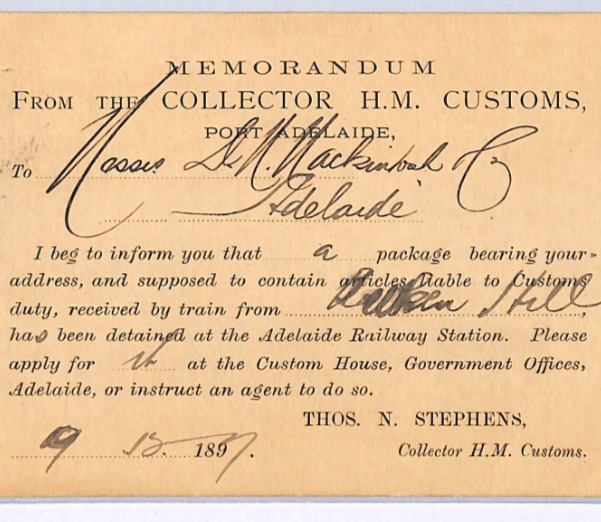 MEMORANDUM
FROM THE COLLECTOR H.M. CUSTOMS,
PORT ADELAIDE,
To Messrs D. & W. Mackintosh & Co
Adelaide
I beg to inform you that a package bearing your
address, and supposed to contain articles liable to Customs
duty, received by train from Broken Hill,
has been detained at the Adelaide Railway Station. Please
apply for it at the Custom House, Government Offices,
Adelaide, or instruct an agent to do so.
THOS. N. STEPHENS,
9 12 1897. Collector H.M. Customs.